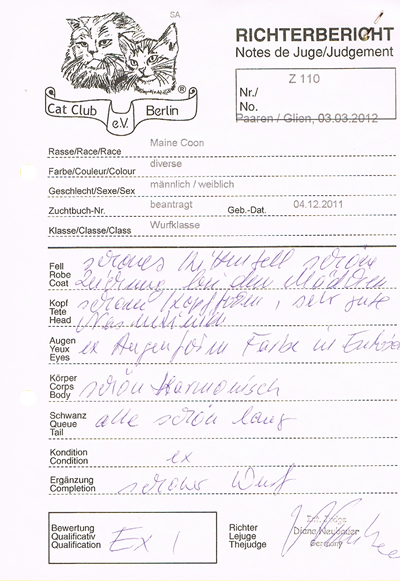 SA
RICHTERBERICHT
Notes de Juge/Judgement
Z 110
Nr./
No.
Cat Club e.V. Berlin
®
Paaren / Glien, 03.03.2012
Rasse/Race/Race Maine Coon
Farbe/Couleur/Colour diverse
Geschlecht/Sexe/Sex männlich / weiblich
Zuchtbuch-Nr. beantragt Geb.-Dat. 04.12.2011
Klasse/Classe/Class Wurfklasse
Fell schönes Kittenfell schöne
Robe
Coat Zeichnung bei den Mädchen
Kopf schöne Kopfform, sehr gute
Tete
Head
Augen ex Augenform Farbe in
Yeux
Eyes
Körper schön Harmonisch
Corps
Body
Schwanz alle schön lang
Queue
Tail
Kondition ex
Condition
Ergänzung schöner Wurf
Completion
Bewertung
Qualificativ Ex 1
Qualification
Richter
Lejuge Diane Neubauer
Thejudge Germany